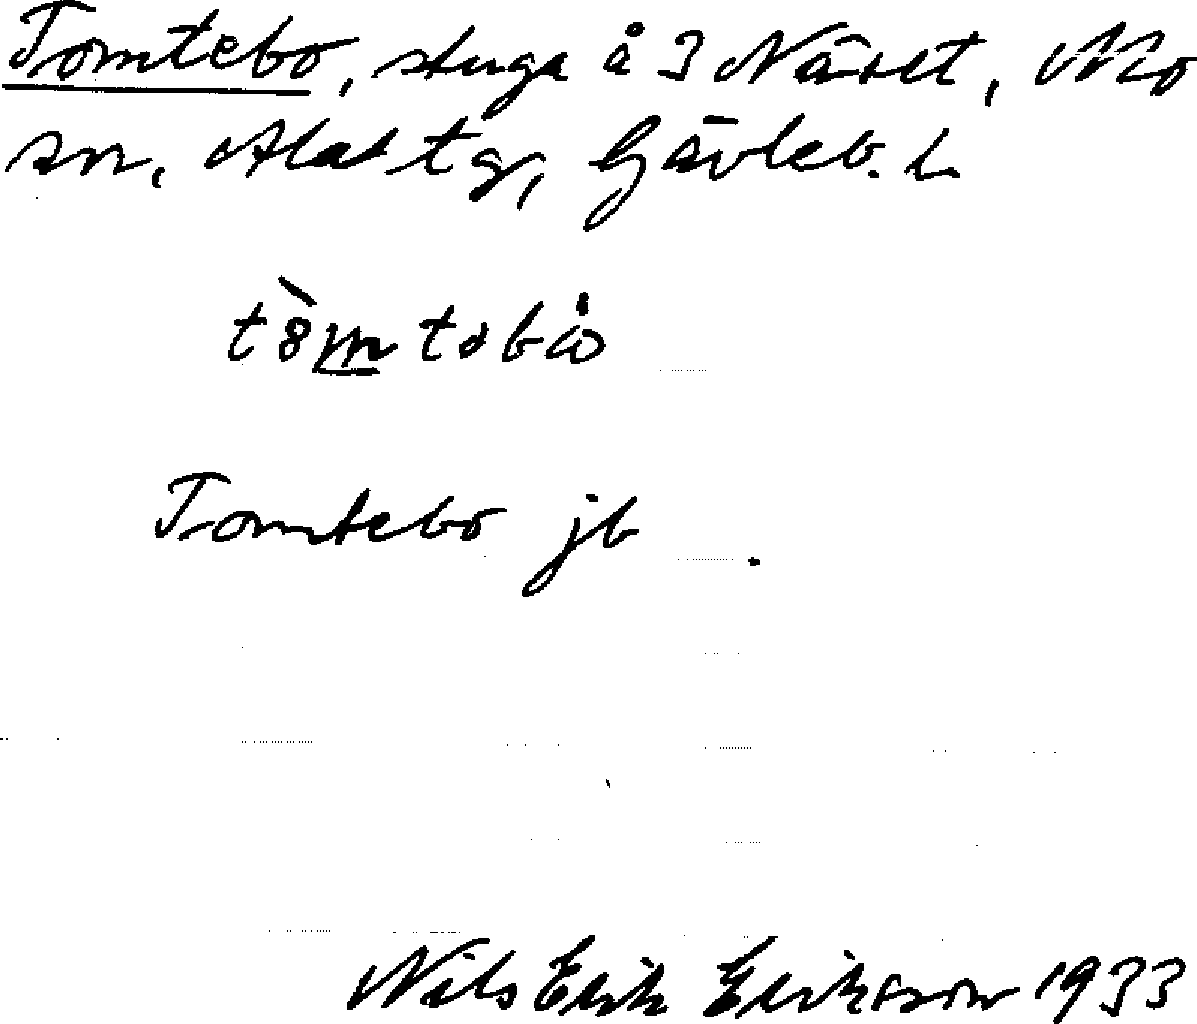 Tomtebo, stuga å 3 Näset, Mo
sn, Ala tg, Gävleb. L.
tòmtəbò
Tomtebo jb
Nils Erik Eriksson 1933